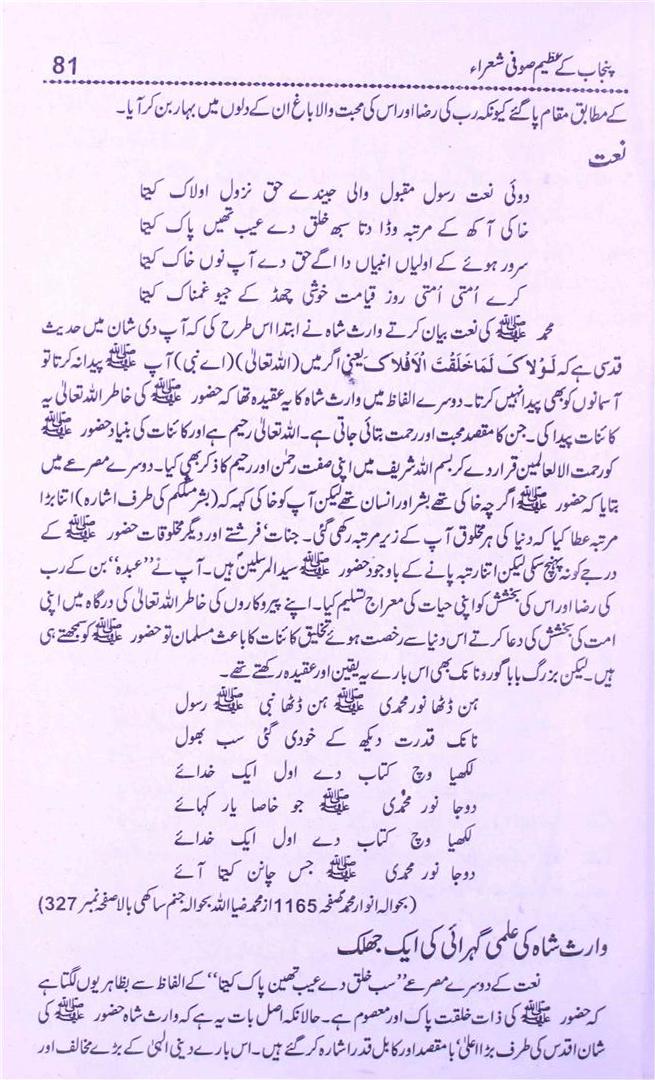 پنجاب کے عظیم صوفی شعراء 81
کے مطابق مقام پا گئے کیونکہ رب کی رضا اور اس کی محبت والا باغ ان کے دلوں میں بہار بن کر آیا۔
نعت
دوئی نعت رسول مقبول والی جیندے حق نزول اولاک کیتا
خاکی آکھ کے مرتبہ وڈا دتا سبھ خلق دے عیب تھیں پاک کیتا
سرور ہوئے کے اولیاں انبیاں دا اگے حق دے آپ نوں خاک کیتا
کرے اُمتی اُمتی روز قیامت خوشی چھڈ کے جیو غمناک کیتا
محمد ﷺ کی نعت بیان کرتے وارث شاہ نے ابتدا اس طرح کی کہ آپ دی شان میں حدیث
قدسی ہے کہ لَوْلاکَ لَمَا خَلَقْتُ الْاَفْلاکَ یعنی اگر میں (اللہ تعالیٰ) (اے نبی) آپ ﷺ پیدا نہ کرتا تو
آسمانوں کو بھی پیدا نہیں کرتا۔ دوسرے الفاظ میں وارث شاہ کا یہ عقیدہ تھا کہ حضور ﷺ کی خاطر اللہ تعالیٰ یہ
کائنات پیدا کی۔ جن کا مقصد محبت اور رحمت بتائی جاتی ہے۔ اللہ تعالیٰ رحیم ہے اور کائنات کی بنیاد حضور ﷺ
کو رحمت الالعالمین قرار دے کر بسم اللہ شریف میں اپنی صفت رحمٰن اور رحیم کا ذکر بھی کیا۔ دوسرے مصرعے میں
بتایا کہ حضور ﷺ اگرچہ خاکی تھے بشر اور انسان تھے لیکن آپ کو خاکی کہہ کہ (بشر مثلکم کی طرف اشارہ) اتنا بڑا
مرتبہ عطا کیا کہ دنیا کی ہر مخلوق آپ کے زیر مرتبہ رکھی گئی۔ جنات‘ فرشتے اور دیگر مخلوقات حضور ﷺ کے
درجے کو نہ پہنچ سکی لیکن اتنا رتبہ پانے کے باوجود حضور ﷺ سید المرسلین ہیں۔ آپ نے ’’عبدہ‘‘ بن کے رب
کی رضا اور اس کی بخشش کو اپنی حیات کی معراج تسلیم کیا۔ اپنے پیروکاروں کی خاطر اللہ تعالیٰ کی درگاہ میں اپنی
امت کی بخشش کی دعا کرتے اس دنیا سے رخصت ہوئے تخلیق کائنات کا باعث مسلمان تو حضور ﷺ کو سمجھتے ہی
ہیں۔ لیکن بزرگ بابا گورو نانک بھی اس بارے یہ یقین اور عقیدہ رکھتے تھے۔
ہن ڈٹھا نور محمدی ﷺ ہن ڈٹھا نبی ﷺ رسول
نانک قدرت دیکھ کے خودی گئی سب بھول
لکھیا وچ کتاب دے اول ایک خدائے
دوجا نور محمدی ﷺ جو خاصا یار کہائے
لکھیا وچ کتاب دے اول ایک خدائے
دوجا نور محمدی ﷺ جس چانن کیتا آئے
(بحوالہ انوار محمد صفحہ 1165 از محمد ضیا اللہ بحوالہ جنم ساکھی بالا صفحہ نمبر 327)
وارث شاہ کی علمی گہرائی کی ایک جھلک
نعت کے دوسرے مصرعے ’’سب خلق دے عیب تھین پاک کیتا‘‘ کے الفاظ سے بظاہر یوں لگتا ہے
کہ حضور ﷺ کی ذات خلقت پاک اور معصوم ہے۔ حالانکہ اصل بات یہ ہے کہ وارث شاہ حضور ﷺ کی
شان اقدس کی طرف بڑا اعلیٰ‘ با مقصد اور کابل قدر اشارہ کر گئے ہیں۔ اس بارے دینی الٰہی کے بڑے مخالف اور